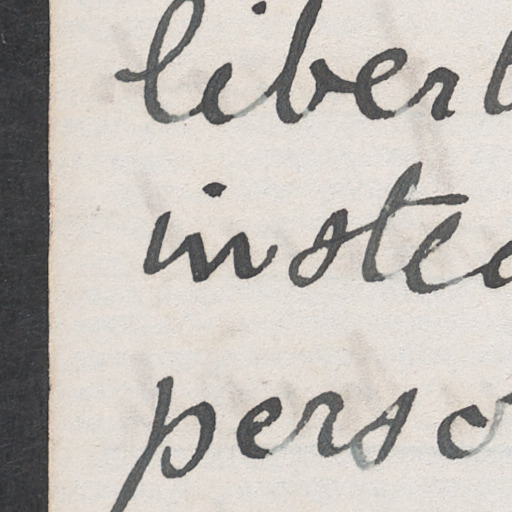 libert
instea
perso